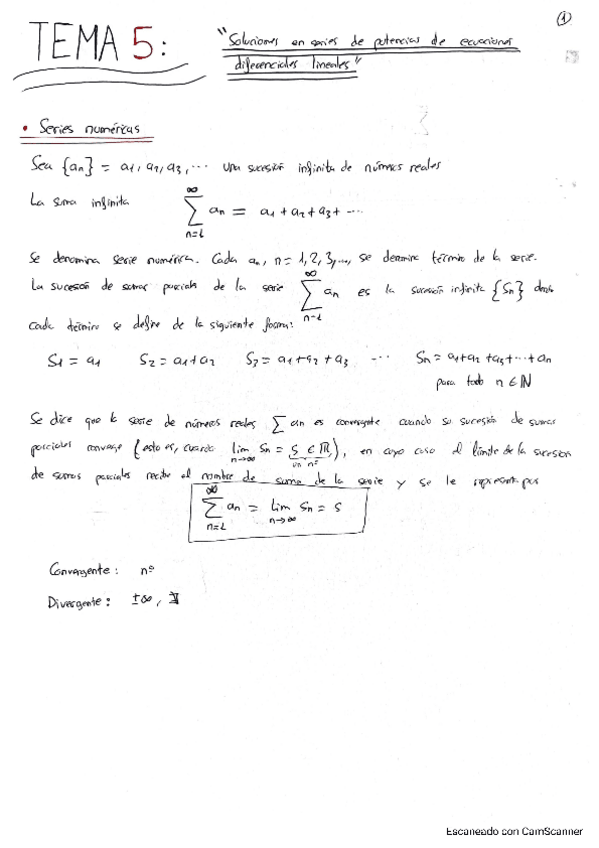 ①
TEMA 5: "Soluciones en series de potencias de ecuaciones
diferenciales lineales"
• Series numéricas
Sea {an} = a1, a2, a3, ... una sucesión infinita de números reales
La suma infinita ∑_{n=1}^{∞} an = a1 + a2 + a3 + ...
Se denomina serie numérica. Cada an, n = 1, 2, 3, ..., se denomina término de la serie.
La sucesión de sumas parciales de la serie ∑_{n=1}^{∞} an es la sucesión infinita {Sn} donde
cada término se define de la siguiente forma:
S1 = a1 S2 = a1 + a2 S3 = a1 + a2 + a3 ... Sn = a1 + a2 + a3 + ... + an
para todo n ∈ ℕ
Se dice que la serie de números reales ∑ an es convergente cuando su sucesión de sumas
parciales converge (esto es, cuando lim_{n→∞} Sn = S ∈ ℝ), en cuyo caso el límite de la sucesión
un nº
de sumas parciales recibe el nombre de suma de la serie y se le representa por
∑_{n=1}^{∞} an = lim_{n→∞} Sn = S
Convergente: nº
Divergente: ±∞, ∄
Escaneado con CamScanner